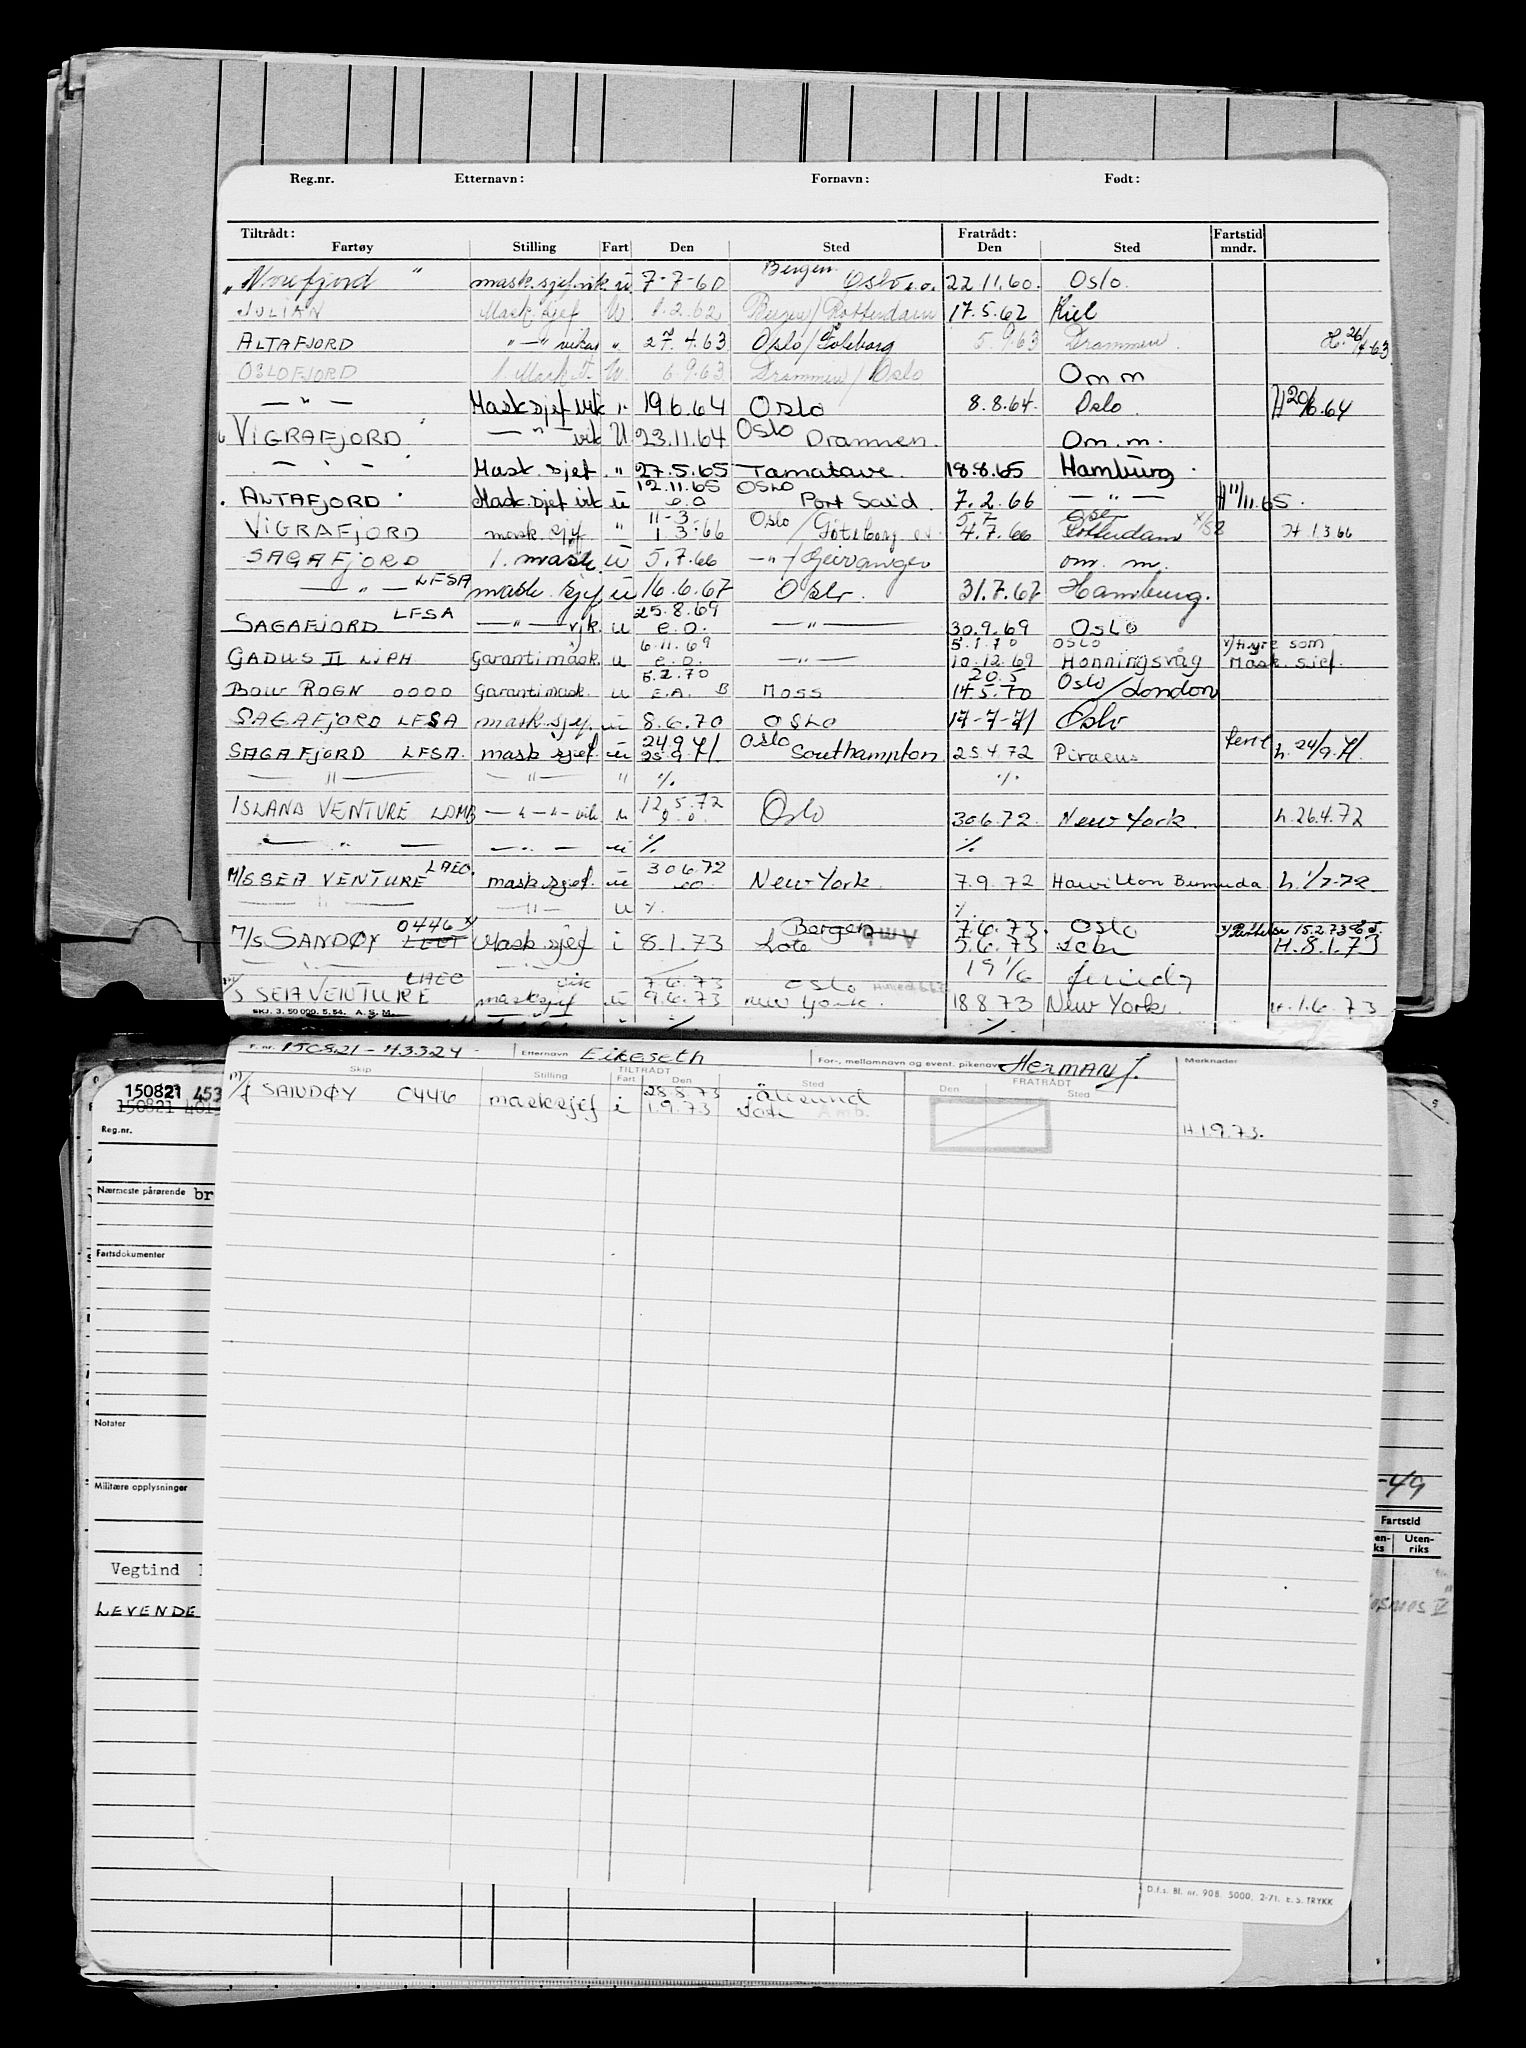 Reg.nr. Etternavn: Fornavn: Født:
Tiltrådt: Fratrådt: Fartstid
Fartøy Stilling Fart Den Sted Den Sted mndr.
Bergen
„ Norefjord " mask.sjef.vik. u. 7-7-60 Oslo e.o. 22.11.60. Oslo.
JULIAN Mask.sjef U. 1.2.62 Bergen/Rotterdam 17.5.62 Kiel
ALTAFJORD —"— vikar " 27.4.63 Oslo/Göteborg 5.9.63 Drammen. H. 26/4-63
OSLOFJORD 1. Mask. U. 6.9.63 Drammen/Oslo Om m
— " — Mask sjef vik 19.6.64 Oslo 8.8.64. Oslo. H 20/6.64
VIGRAFJORD — " — vik U 23.11.64 Oslo Drammen. Om.m.
— " — Mask. sjef. " 27.5.65 Tamatave. 18.8.65 Hamburg.
12.11.65 OSLO
ALTAFJORD Mask.sjef vik u e.o Port Said. 7.2.66 — " — H 11/11.65.
11-3- Oslo 5.7 Oslo
VIGRAFJORD mask. sjef " 1.3.66 /Göteborg e.o. 4.7.66 Rotterdam H 1.3.66
SAGAFJORD 1. mask. u 5.7.66 —"—/Geiranger om. m.
— " — LFSA mask. sjef u 16.6.67 Oslo. 31.7.67 Hamburg.
25.8.69
SAGAFJORD LFSA — " — vik. u e.o. — " — 30.9.69 OSLO
6.11.69 5.1.70 OSLO x/Hyre som
GADUS II LIPH Garantimask. u e.o. — " — 10.12.69 Honningsvåg Mask. sjef.
5.2.70 20.5 Oslo
BOW ROGN 0000 Garantimask. u E.A. B Moss 14.5.70 /London
SAGAFJORD LFSA mask.sjef. u 8.6.70 OSLO 17-7-71 Oslo
24.9 Oslo
SAGAFJORD LFSA. mask sjef. u 25.9.71. Southampton 25.4.72 Piraeus ferie h. 24/9.71.
— " — — " — " %. %.
12.5.72
ISLAND VENTURE LDMB — " — " — vik u e.o. Oslo 30.6.72. New York. h. 26.4.72
— " — — " — u %. %.
LAEC. 30.6.72
M/S SEA VENTURE mask.sjef. u eo New York. 7.9.72 Hamilton Bermuda. h. 1/7-72.
— " — — " — u %. %.
0446 x/ Bergen Amb 7.6.73. Oslo
M/S. SANDØY LEET Mask sjef i 8.1.73 Lote 5.6.73 H. 8.1.73
19 1/6
LAEO vik 7.6.73 Oslo
SEA VENTURE mask sjef u 9.6.73 New York. 18.8.73 New York. H. 1.6.73
SKJ. 3. 50 000. 5. 54. A. S. M. %. %.
F. nr. 150821-43324 Etternavn Eikeseth For-, mellomnavn og event. pikenavn HERMAN J. Merknader
Skip Stilling TILTRÅDT FRATRÅDT
Fart Den Sted Den Sted
28.8.73 Ålesund
M/f SANDØY 0446 mask sjef i 1.9.73 Lote Amb.
H. 1.9.73.
150821 453
150821 401
Reg.nr.
Nærmeste pårørende br
Fartsdokumenter
Notater
Militære opplysninger
-49
Fartstid
en-ks Uten-riks
Vegtind
LEVENDE
OSMOS V
D.f.s. Bl. nr. 908. 5000. 2-71. E. S. TRYKK